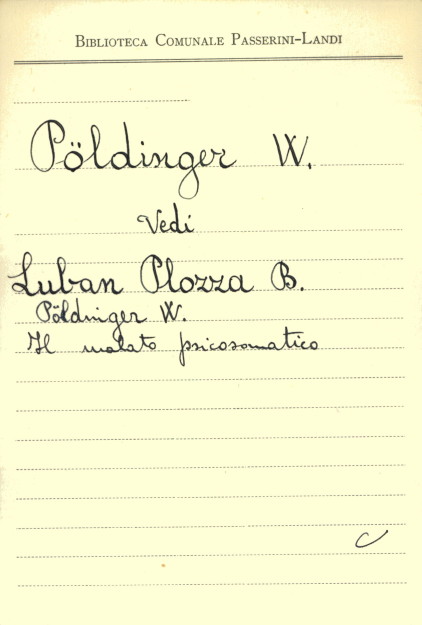 BIBLIOTECA COMUNALE PASSERINI-LANDI
Pöldinger W.
Vedi
Luban Plozza B.
Pöldinger W.
Il malato psicosomatico
C